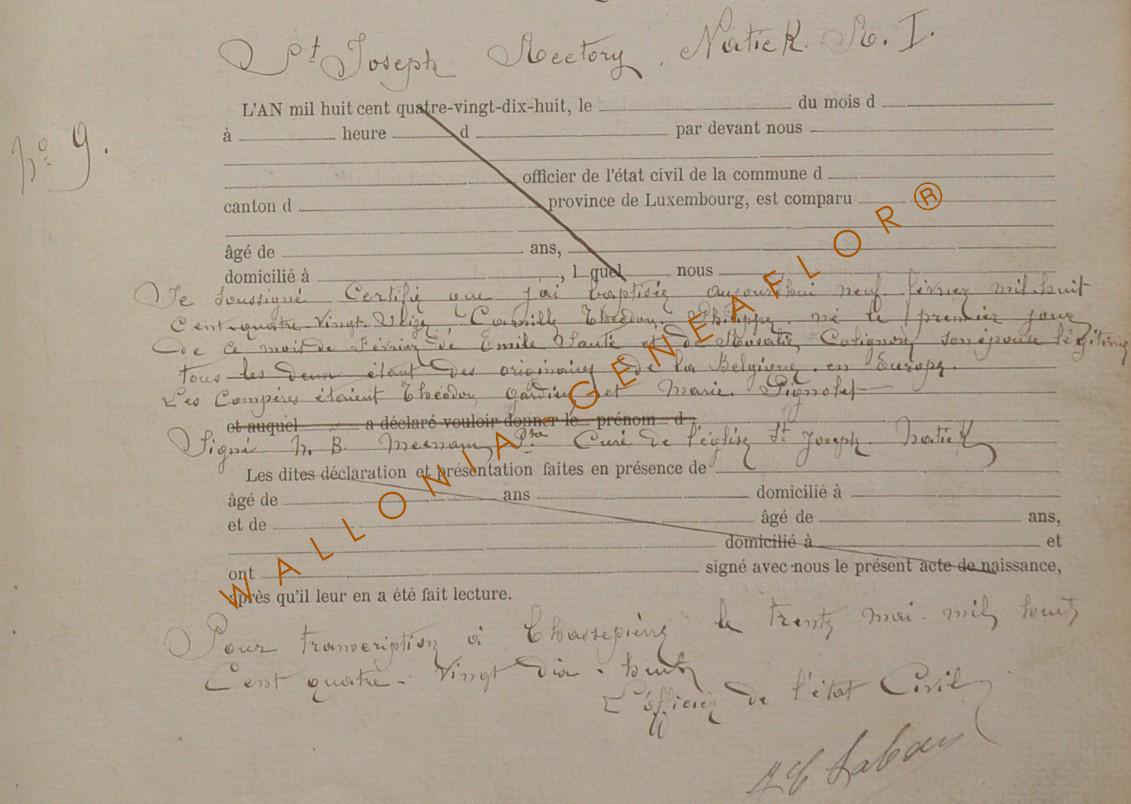 St Joseph Rectory. Natick. R. I.
L'AN mil huit cent quatre-vingt-dix-huit, le du mois d
à heure d par devant nous
No 9.
officier de l'état civil de la commune d
canton d province de Luxembourg, est comparu
âgé de ans,
domicilié à , l quel nous
Je soussigné Certifie que j'ai baptisée aujourd'hui neuf février mil huit
Cent quatre Vingt Camille Théodore Philippe né le premier jour
de ce mois de Février de Emile et de Rosalie Colignon son épouse légitime
tous les deux étant des originaires de la Belgique en Europe.
Les Compères étaient Théodore et Marie Pignolet
et auquel a déclaré vouloir donner le prénom d
Signé N. B. Ptre Curé de l'église St Joseph. Natick
Les dites déclaration et présentation faites en présence de
âgé de ans domicilié à
et de âgé de ans,
domicilié à et
ont signé avec nous le présent acte de naissance,
après qu'il leur en a été fait lecture.
Pour transcription à Chassepierre le trente mai mil huit
Cent quatre-Vingt dix-huit
L'officier de l'état Civil
WALLONIA GENEAFLOR®